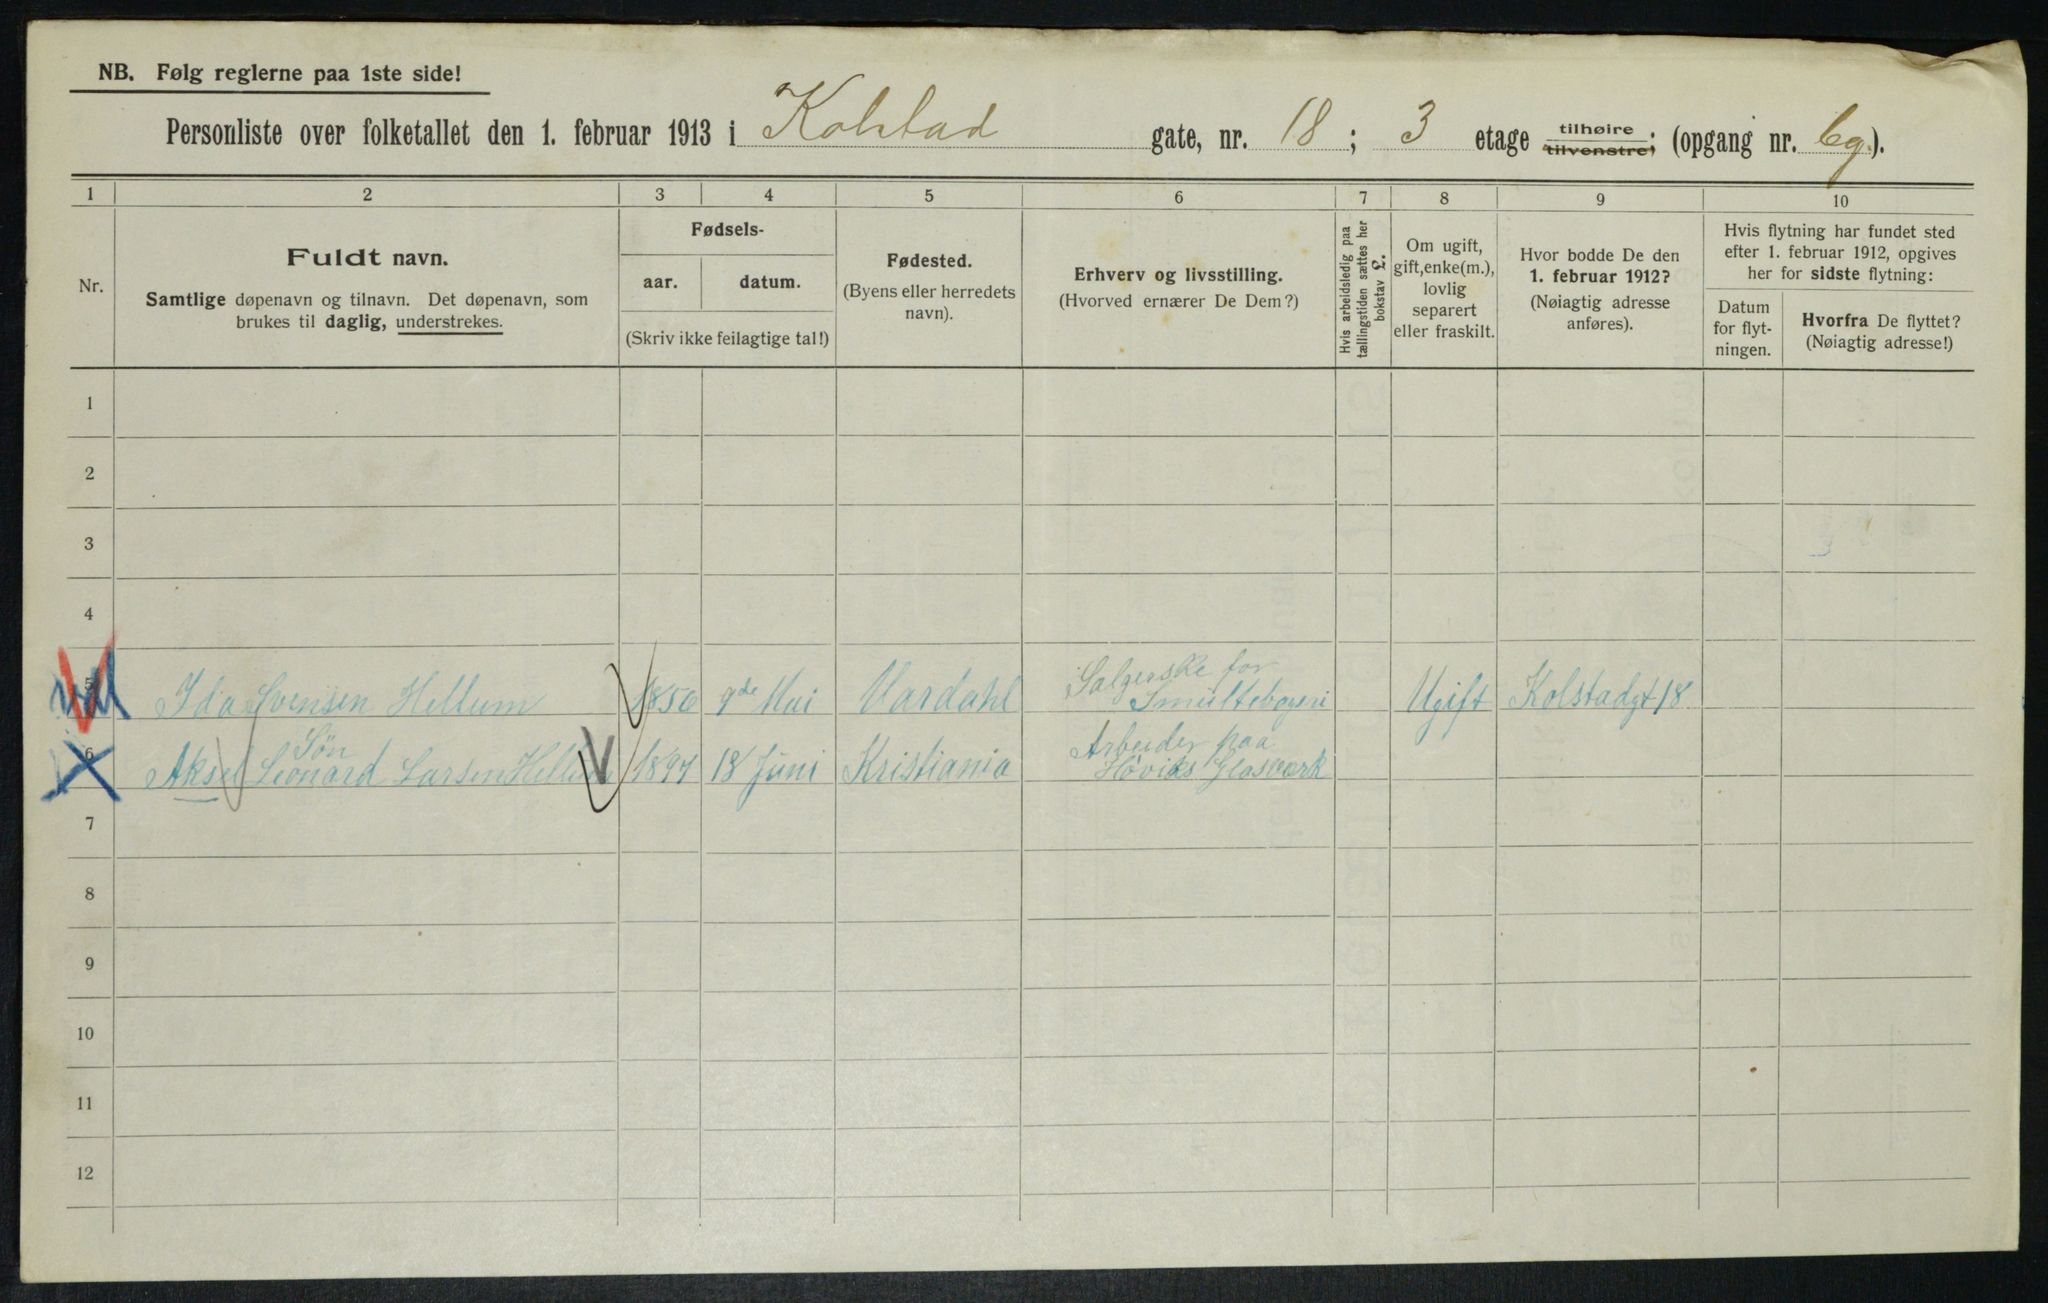 NB. Følg reglerne paa 1ste side!
Personliste over folketallet den 1. februar 1913 i Kolstad gate, nr. 18; 3 etage tilhøire tilvenstre; (opgang nr. bg.).
1 2 3 4 5 6 7 8 9 10
Nr.
Fuldt navn.
Samtlige døpenavn og tilnavn. Det døpenavn, som
brukes til daglig, understrekes.
Fødsels-
aar. datum.
(Skriv ikke feilagtige tal!)
Fødested.
(Byens eller herredets
navn).
Erhverv og livsstilling.
(Hvorved ernærer De Dem?)
Hvis arbeidsledig paa
tællingstiden sættes her
bokstav L.
Om ugift,
gift, enke(m.),
lovlig
separert
eller fraskilt.
Hvor bodde De den
1. februar 1912?
(Nøiagtig adresse
anføres).
Hvis flytning har fundet sted
efter 1. februar 1912, opgives
her for sidste flytning:
Datum
for flyt-
ningen.
Hvorfra De flyttet?
(Nøiagtig adresse!)
1
2
3
4
5 Ida Svensen Hellum 1856 9de Mai Vardahl Salgerske for Smultebageri Ugift Kolstadgt 18
6 Søn
Aksel Leonard Larsen Hellum 1897 18 Juni Kristiania Arbeider paa Høviks Glasverk
7
8
9
10
11
12